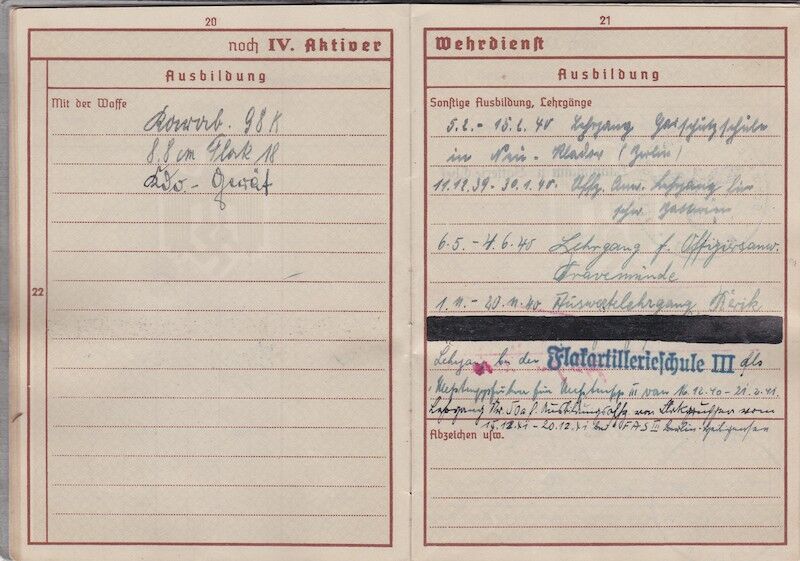 20
noch IV. Aktiver
Ausbildung
Mit der Waffe
Karab. 98 K
8,8 cm Flak 18
Kdo.-Gerät
22
21
Wehrdienst
Ausbildung
Sonstige Ausbildung, Lehrgänge
5.2. - 15.2.40 Lehrgang Gasschutzschule
in Neu-Kladow (Berlin)
11.12.39 - 30.1.40 Uffz. Anw. Lehrgang
schw.
6.5. - 4.6.40 Lehrgang f. Offiziersanw.
Travemünde
1.11. - 20.11.40 Rerik
Lehrgang bei der Flakartillerieschule III als
III von 16.12.40 - 21.2.41
Lehrgang von vom
- 20.12. bei FAS III Berlin-Heiligensee
Abzeichen usw.